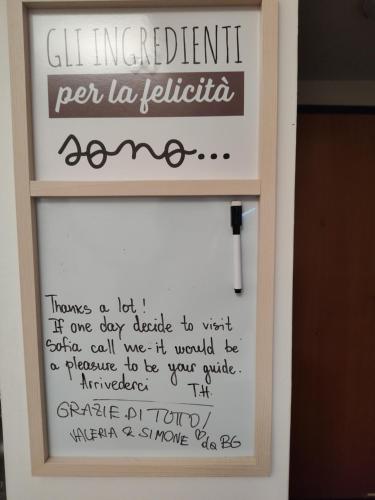 GLI INGREDIENTI
per la felicità
sono...
Thanks a lot!
If one day decide to visit
Sofia call me - it would be
a pleasure to be your guide.
Arrivederci T.H.
GRAZIE DI TUTTO!
VALERIA & SIMONE ♡ da BG